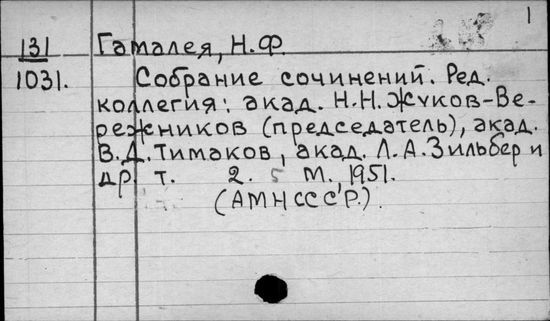 1
131 Гамалея, Н.Ф.
1031. Собрание сочинений. Ред.
коллегия: акад. Н.Н. Жуков-Ве-
режников (председатель), акад.
В.Д. Тимаков, акад. Л.А. Зильбер и
др. т. 2. 5 М., 1951.
(АМНСССР.).